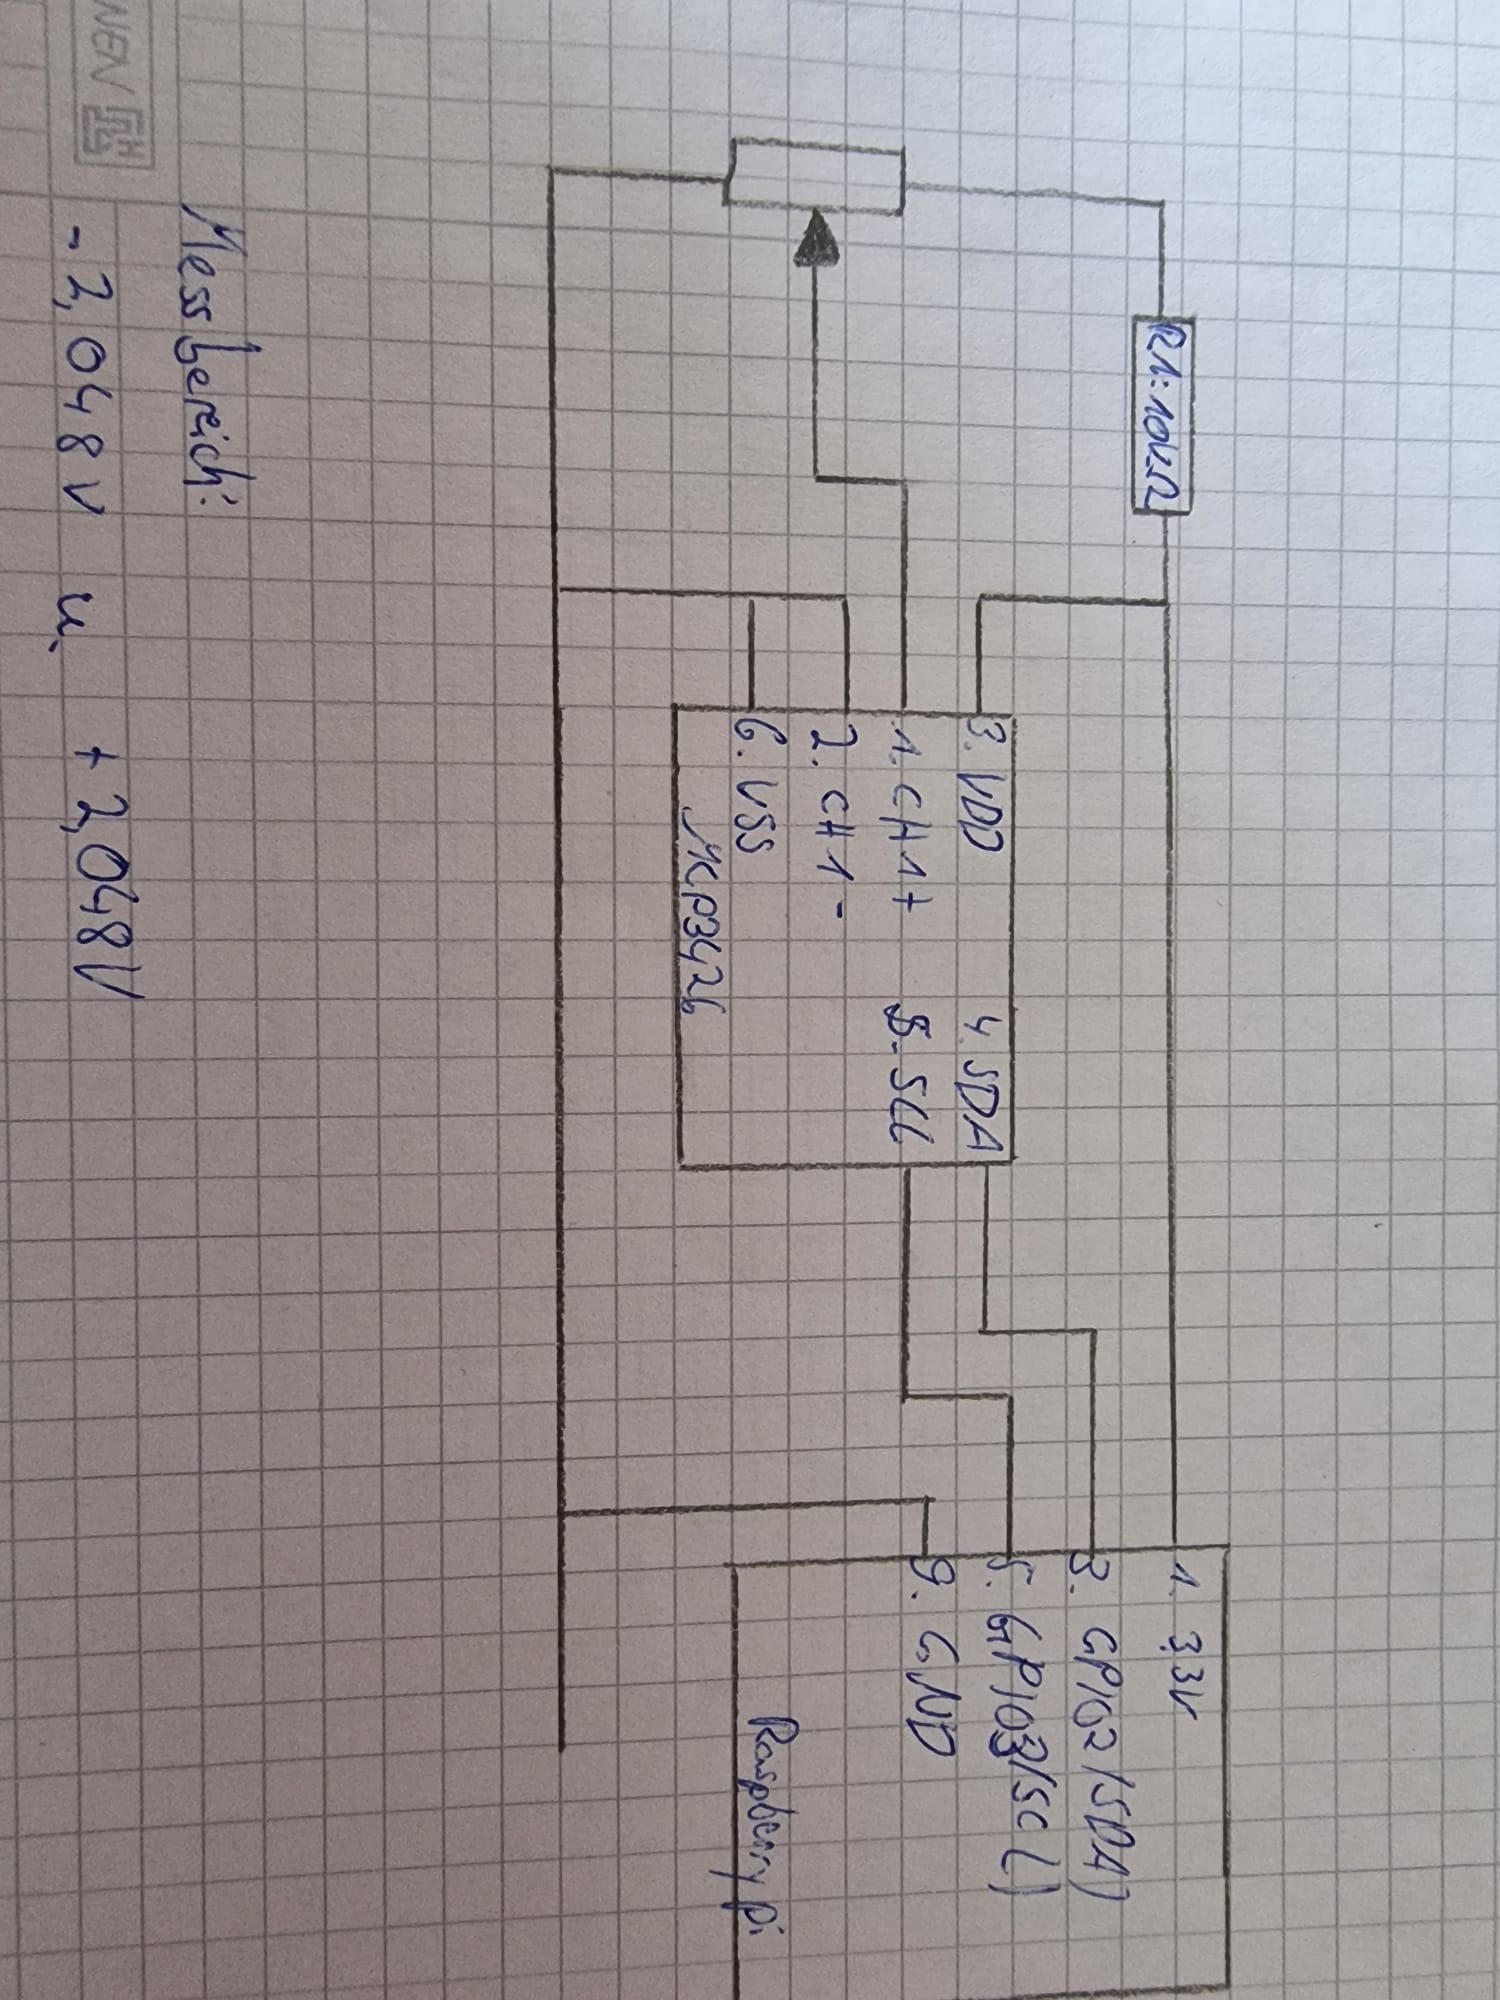 R1: 10kΩ
3. VDD
1. CH1+
2. CH1-
6. VSS
4. SDA
5. SCL
MCP3426
1. 3,3V
3. GPIO2/SDA)
5. GPIO3/SCL)
9. GND
Raspberry pi
Messbereich:
- 2,048V u. + 2,048V